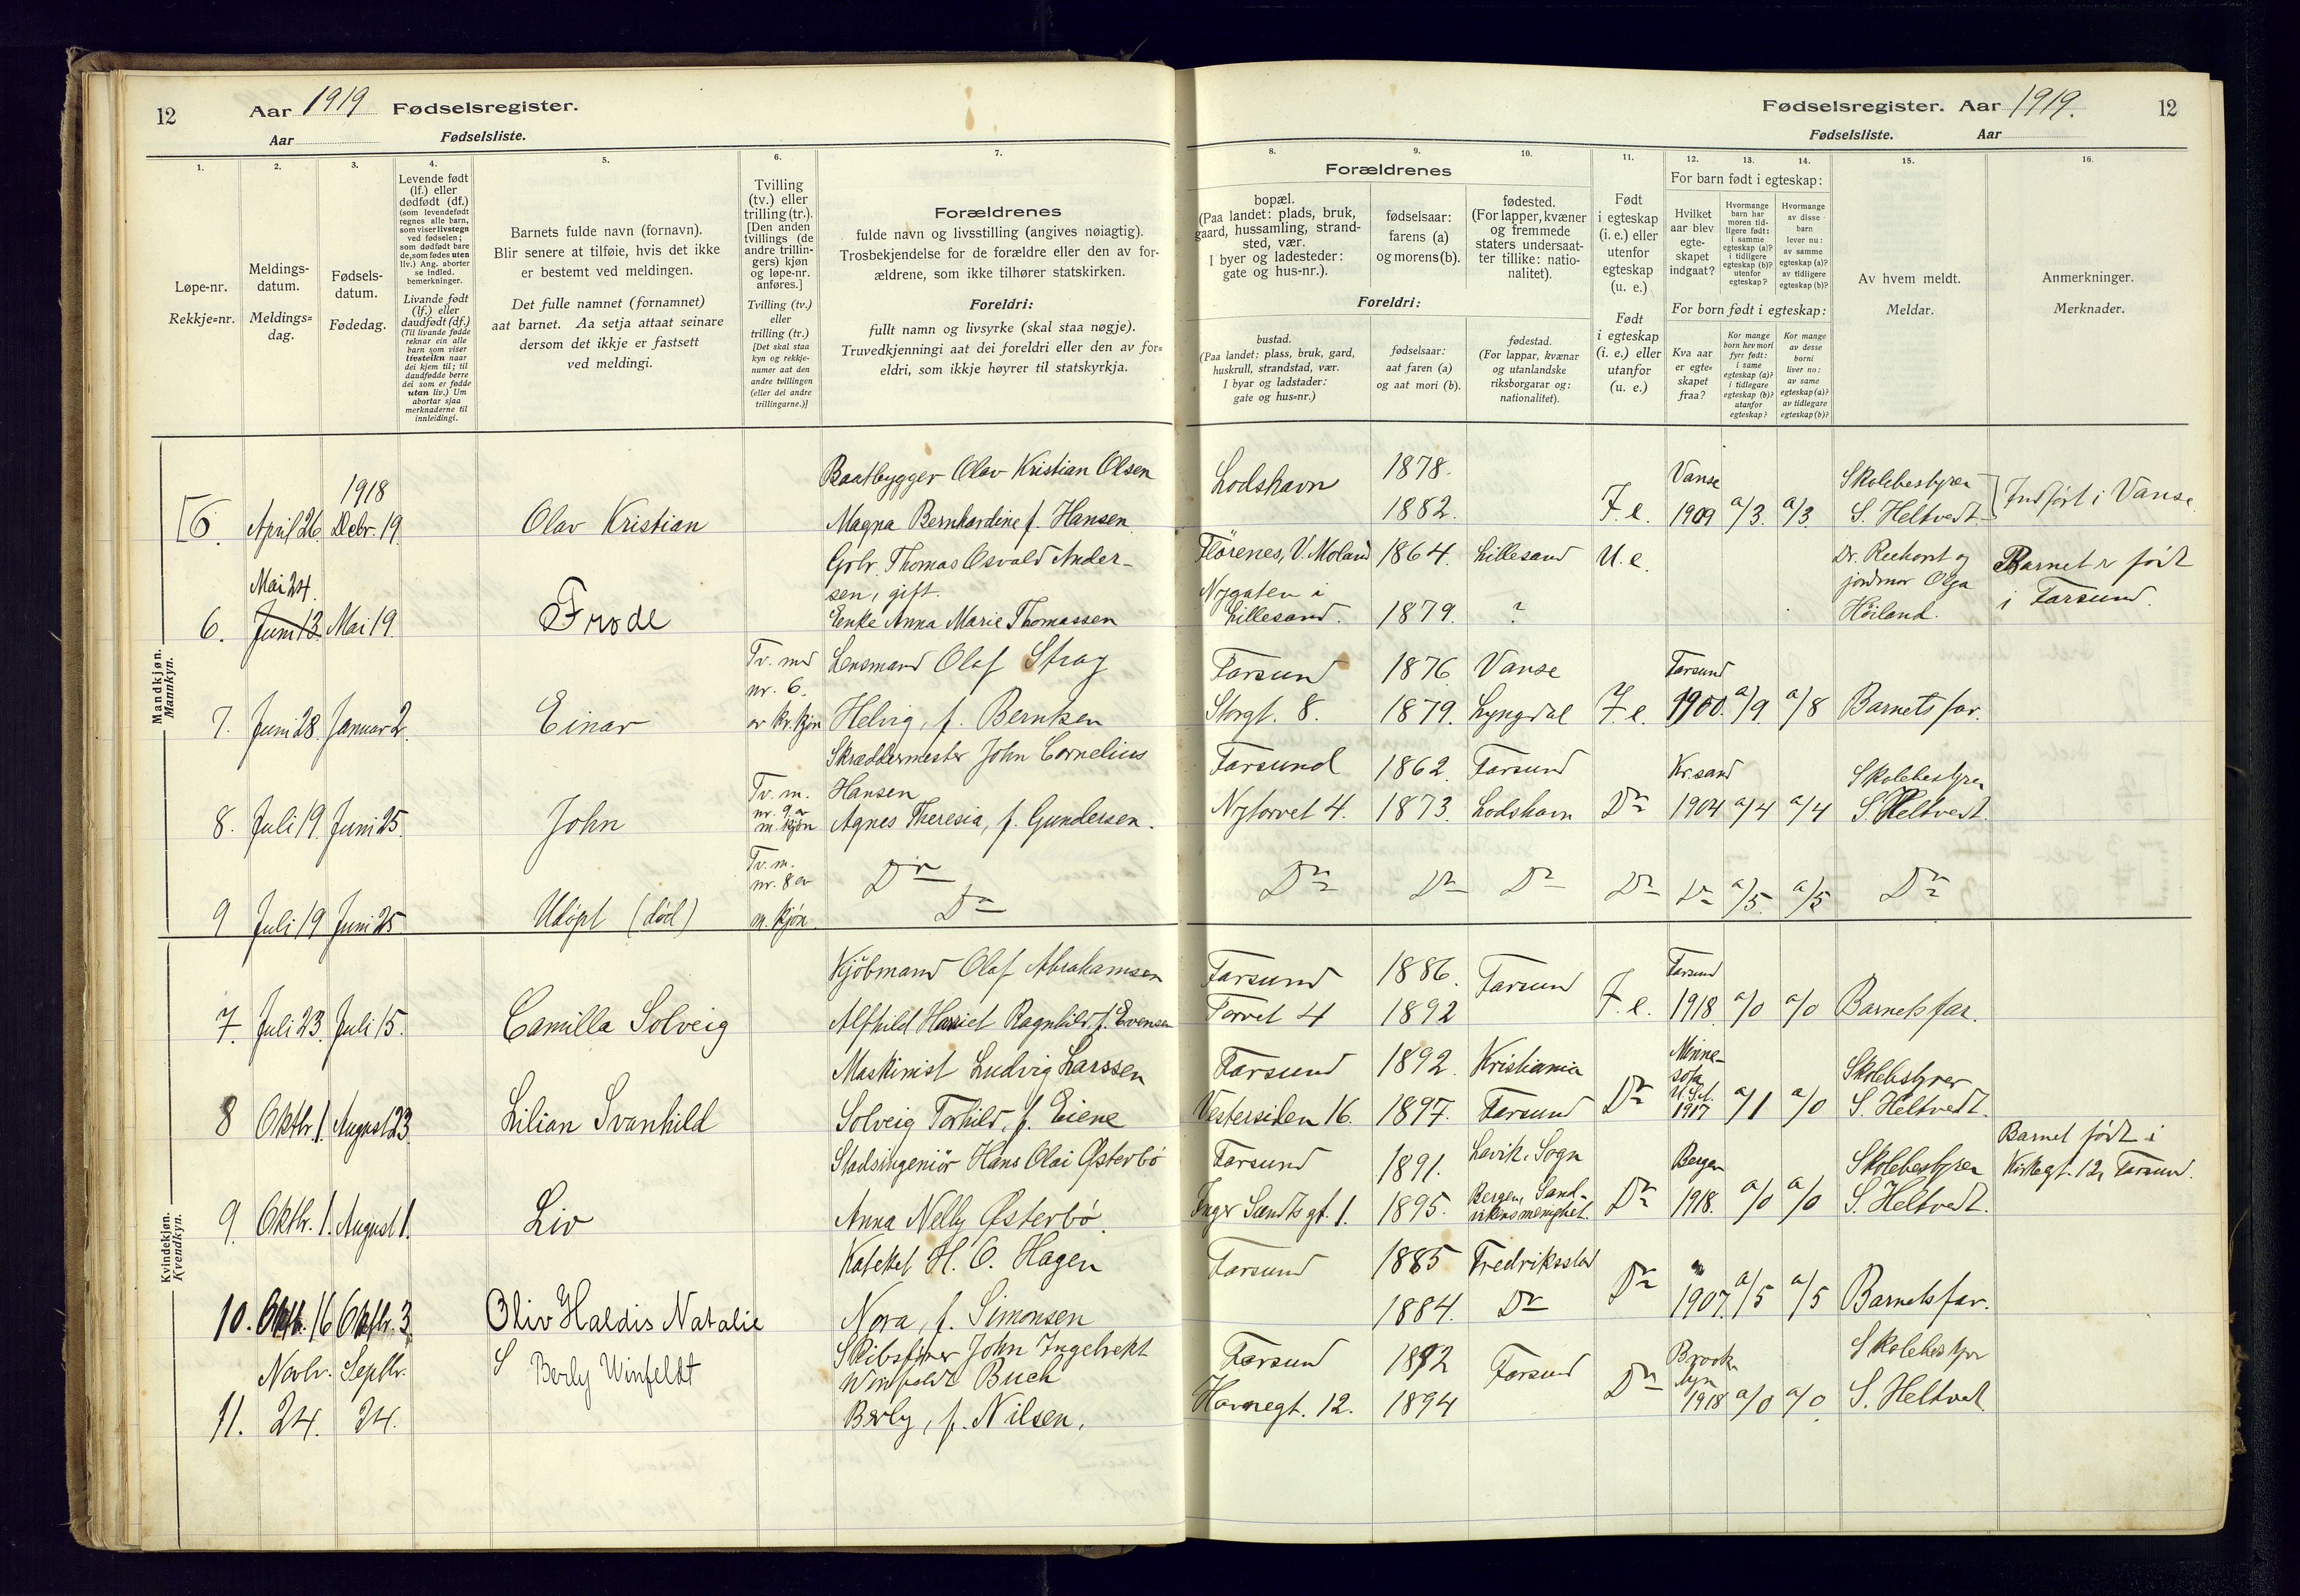 12
Aar 1919 Fødselsregister.
Aar
Fødselsliste.
Fødselsregister. Aar 1919.
12
Fødselsliste.
Aar
1.
Løpe-nr.
Rekkje=nr.
2.
Meldings-
datum.
Meldings=
dag.
3.
Fødsels-
datum.
Fødedag.
4.
Levende født
(lf.) eller
dødfødt (df.)
(som levendefødt
regnes alle barn,
som viser livstegn
ved fødselen;
som dødfødt bare
de, som fødes uten
liv.) Ang. aborter
se indled.
bemerkninger.
Livande født
(lf.) eller
daudfødt (df.)
(Til livande fødde
reknar ein alle
barn som viser
livsteikn naar
dei kjem til; til
daudfødde berre
dei som er fødde
utan liv.) Um
abortar sjaa
merknaderne til
innleidingi.
5.
Barnets fulde navn (fornavn).
Blir senere at tilføie, hvis det ikke
er bestemt ved meldingen.
Det fulle namnet (fornamnet)
aat barnet. Aa setja attaat seinare
dersom det ikkje er fastsett
ved meldingi.
6.
Tvilling
(tv.) eller
trilling (tr.).
[Den anden
tvillings (de
andre trillin-
gers) kjøn
og løpe-nr.
anføres.]
Tvilling (tv.)
eller
trilling (tr.)
[Det skal staa
kyn og rekkje-
numer aat den
andre tvillingen
(eller dei andre
trillingarne.)]
7.
Forældrenes
fulde navn og livsstilling (angives nøiagtig).
Trosbekjendelse for de forældre eller den av for-
ældrene, som ikke tilhører statskirken.
Foreldri:
fullt namn og livsyrke (skal staa nøgje).
Truvedkjenningi aat dei foreldri eller den av for=
eldri, som ikkje høyrer til statskyrkja.
Forældrenes
8.
bopæl.
(Paa landet: plads, bruk,
gaard, hussamling, strand-
sted, vær.
I byer og ladesteder:
gate og hus-nr.).
9.
fødselsaar:
farens (a)
og morens (b).
10.
fødested.
(For lapper, kvæner
og fremmede
staters undersaat-
ter tillike: natio-
nalitet).
Foreldri:
bustad.
(Paa landet: plass, bruk, gard,
huskrull, strandstad, vær.
I byar og ladstader:
gate og hus=nr.)
fødselsaar:
aat faren (a)
og aat mori (b).
fødestad.
(For lappar, kvænar
og utanlandske
riksborgarar og:
nationalitet).
11.
Født
i egteskap
(i. e.) eller
utenfor
egteskap
(u. e.)
Født
i egteskap
(i. e.) eller
utanfor
(u. e.)
12.
13.
14.
For barn født i egteskap:
Hvilket
aar blev
egte-
skapet
indgaat?
Hvormange
barn har
moren tid-
ligere født:
i samme
egteskap (a)?
i tidligere
egteskap (b)?
utenfor
egteskap?
Hvormange
av disse
barn
lever nu:
av samme
egteskap (a)?
av tidligere
egteskap (b)?
For born født i egteskap:
Kva aar
er egte=
skapet
fraa?
Kor mange
born hev mori
fyrr født:
i same
egteskap (a)?
i tidlegare
egteskap (b)?
utanfor
egteskap?
Kor mange
av desse
borni
liver no:
av same
egteskap (a)?
av tidlegare
egteskap (b)?
15.
Av hvem meldt.
Meldar.
16.
Anmerkninger.
Merknader.
Mandkjøn.
Mannkyn.
[6. April 26. 1918 Debr. 19. Olav Kristian
Baatbygger Olav Kristian Olsen
Magna Bernhardine f. Hansen
Lodshavn 1878. 1882. I. e. Vanse 1909 a/3. a/3
Skolebestyrer
S. Heltvedt.
Indført i Vanse
6. Mai 24. Juni 13. Mai 19. Frode
Grbr. Thomas Osvald Ander-
sen, gift.
Enke Anna Marie Thomassen
Flörenes, V. Moland 1864. Lillesand U. e.
Nygaten i
Lillesand. 1879. ?
Dr. Reehorst og
jordmor Olga
Höiland.
Barnet er født
i Farsund.
7. Juni 28. Januar 2. Einar
Tv. med
nr. 6.
av kv.kjøn
Lensmand Olaf Stray
Helvig, f. Berntsen
Farsund 1876 Vanse
Storgt. 8. 1879. Lyngdal I. e. Farsund 1900. a/9 a/8 Barnets far.
8. Juli 19. Juni 25. John
Tv. m.
nr. 9 av
m. kjøn
Skræddermester John Cornelius
Hansen
Agnes Theresia, f. Gundersen.
Farsund 1862. Farsund
Nytorvet 4. 1873. Lodshavn Do Kr.sand 1904 a/4 a/4
Skolebestyrer
S. Heltvedt.
9 Juli 19 Juni 25 Udøpt (død)
Tv. m.
nr. 8 av
m. kjøn.
Do
Do
Do Do Do Do Do a/5. a/5 Do
Kvindekjøn.
Kvendkyn.
7. Juli 23. Juli 15. Camilla Solveig
Kjöbmand Olaf Abrahamsen
Alfhild Harriet Ragnhild f. Evensen
Farsund 1886. Farsund
Torvet 4 1892 I. e. Farsund 1918 a/0 a/0 Barnets far.
8 Oktbr. 1. August 23. Lilian Svanhild
Maskinist Ludvig Larssen
Solveig Torhild, f. Eiene
Farsund 1892. Kristiania
Vestersiden 16. 1897. Farsund Do
Minne-
sota
U.S.A.
1917 a/1 a/0
Skolebestyrer
S. Heltvedt.
9. Oktbr. 1. August 1. Liv
Stadsingeniör Hans Olai Østerbö
Anna Nelly Østerbö.
Farsund 1891. Lavik, Sogn
Inger Sundts gt. 1. 1895. Bergen, Sand-
vikens menighet. Do Bergen 1918. a/0 a/0
Skolebestyrer
S. Heltvedt.
Barnet født i
Kirkegt. 12, Farsund.
10. Oktb. 16 Oktbr. 3. Oliv Haldis Natalie
Kateket H. O. Hagen
Nora, f. Simonsen
Farsund 1885 Fredriksstad
1884. Do Do 1907. a/5 a/5 Barnets far.
11. Novbr. 24. Septbr. 24. Berly Winfeldt
Skibsfører John Ingebrekt
Winfeldt Buch
Berly, f. Nilsen.
Farsund 1892 Farsund
Havnegt. 12. 1894 Do
Brook-
lyn
1918 a/0 a/0
Skolebestyr
S. Heltvedt